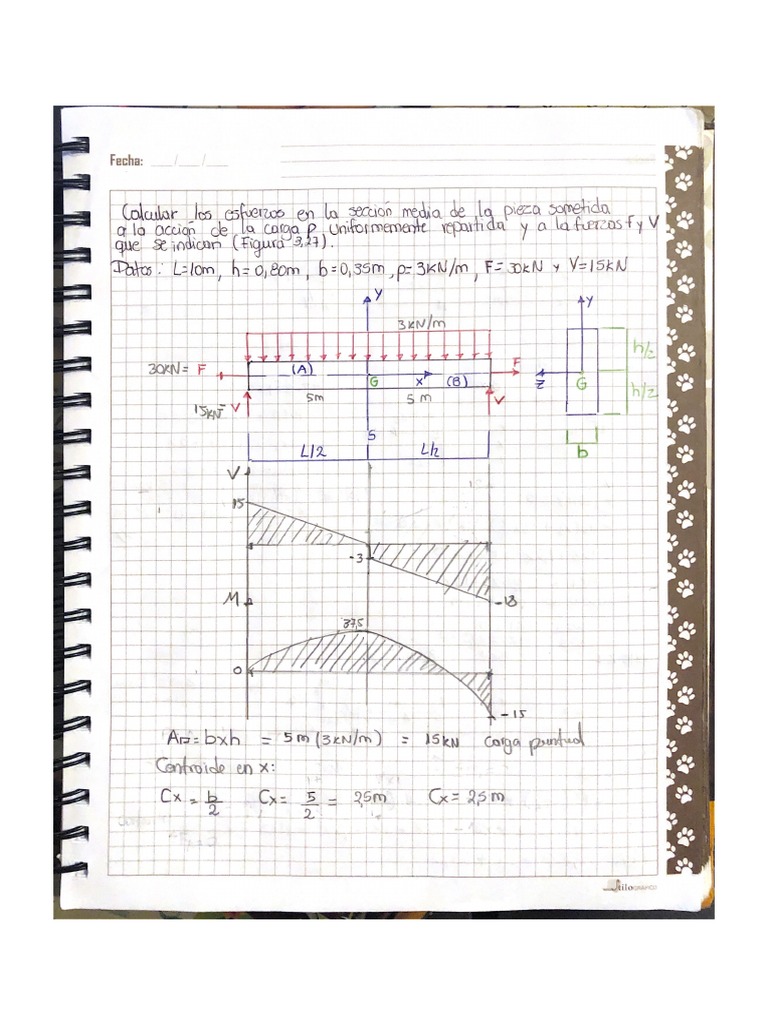 Fecha: ___/___/___
Calcular los esfuerzos en la sección media de la pieza sometida
a la acción de la carga p uniformemente repartida y a la fuerzas f y V
que se indican (Figura 3,27).
Datos: L=10m, h=0,80m, b=0,35m, p=3KN/m, F=30KN y V=15KN
y
y
3KN/m
h/2
30KN = F
(A)
F
G
x
(B)
z
G
h/2
5m
5m
15KN = V
V
S
b
L/2
L/2
V
15
-3
-18
M
37,5
0
-15
Ar = bxh = 5m (3KN/m) = 15KN Carga puntual
Centroide en x:
Cx = b/2 Cx = 5/2 = 2,5m Cx = 2,5m
StiloGRAFICO